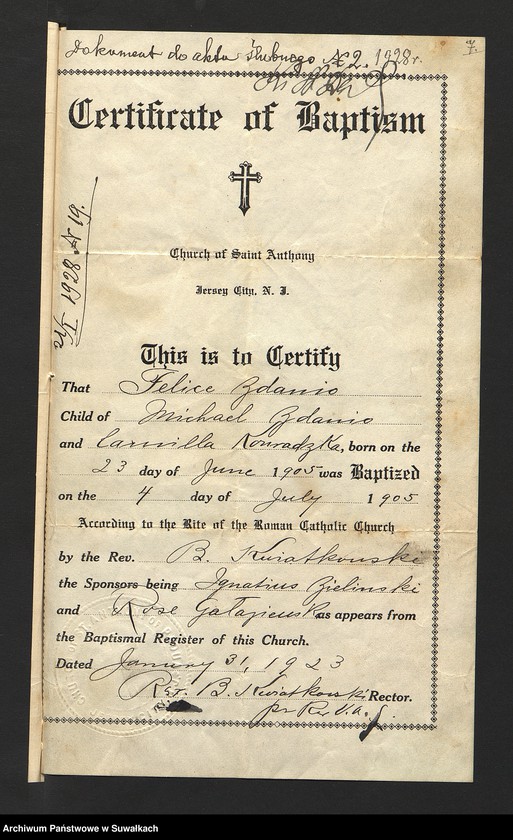 Dokument do aktu ślubnego № 2. 1928 r. 7.
Certificate of Baptism
Church of Saint Anthony
Jersey City, N. J.
This is to Certify
That Felice Zdanio
Child of Michael Zdanio
and Camilla Konradzka, born on the
23 day of June 1905 was Baptized
on the 4 day of July 1905
According to the Rite of the Roman Catholic Church
by the Rev. B. Kwiatkowski
the Sponsors being Ignatius Zielinski
and Rose as appears from
the Baptismal Register of this Church.
Dated January 31, 1923
Rev. B. Kwiatkowski Rector.
Archiwum Państwowe w Suwałkach